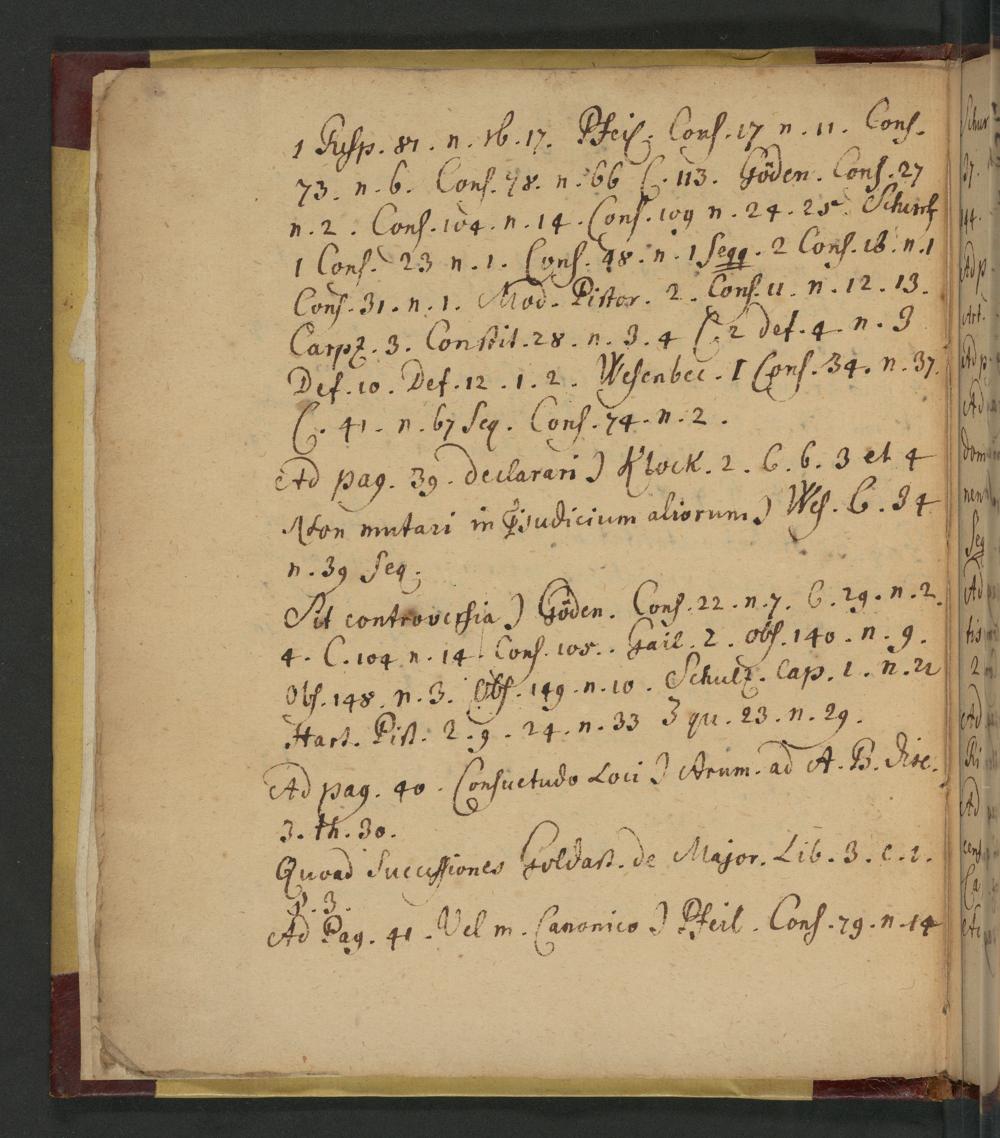 1 Resp. 81. n. 16. 17. Pfeil. Cons. 17 n. 11. Cons.
73. n. 6. Cons. 98. n. 66 C. 113. Göden. Cons. 27
n. 2. Cons. 104. n. 14. Cons. 109 n. 24. 25. Schurf
1 Cons. 23 n. 1. Cons. 48. n. 1 Seqq. 2 Cons. 18. n. 1
Cons. 31. n. 1. Mod. Pistor. 2. Cons. 11. n. 12. 13.
Carpz. 3. Constit. 28. n. 3. 4 C. 2 def. 4. n. 3
Def. 10. Def. 12. 1. 2. Wesenbec. I Cons. 34. n. 37.
C. 41. n. 67 Seq. Cons. 74. n. 2.
Ad pag. 39. declarari) Klock. 2. C. 6. 3 et 4
Non mutari in judicium aliorum) Wes. C. 34
n. 39 Seq.
Sit controversia) Göden. Cons. 22. n. 7. C. 29. n. 2.
4. C. 104 n. 14. Cons. 105. Gail. 2. obs. 140. n. 9.
Obs. 148. n. 3. Obs. 149. n. 10. Schulz. Cap. 1. n. 22
Hart. Pist. 2. q. 24. n. 33 3 qu. 23. n. 29.
Ad pag. 40. Consuetudo Loci) Arum. ad A. B. disc.
3. th. 30.
Quoad Successiones Goldast. de Major. Lib. 3. c. 1.
p. 3.
Ad Pag. 41. Vel m. Canonico) Pfeil. Cons. 79. n. 14